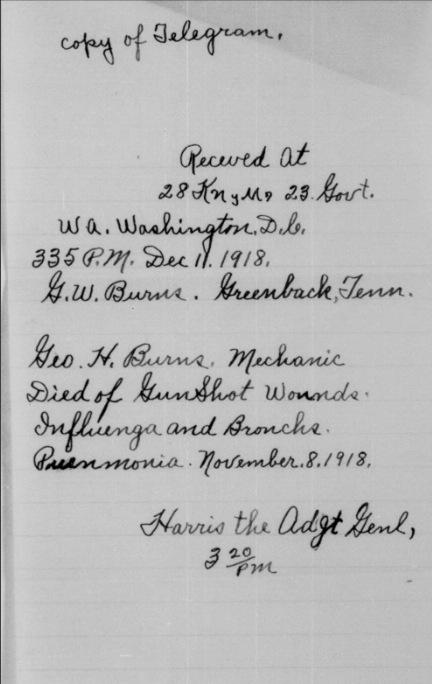 copy of Telegram.
Received At
28 Kn y M, 23 Govt.
W a. Washington, D.C.
335 P.M. Dec 11. 1918.
G. W. Burns. Greenback, Tenn.
Geo. H. Burns. Mechanic
Died of GunShot Wounds.
Influenga and Bronchs.
Puenmonia. November. 8. 1918.
Harris the Adgt Genl,
3 20/PM